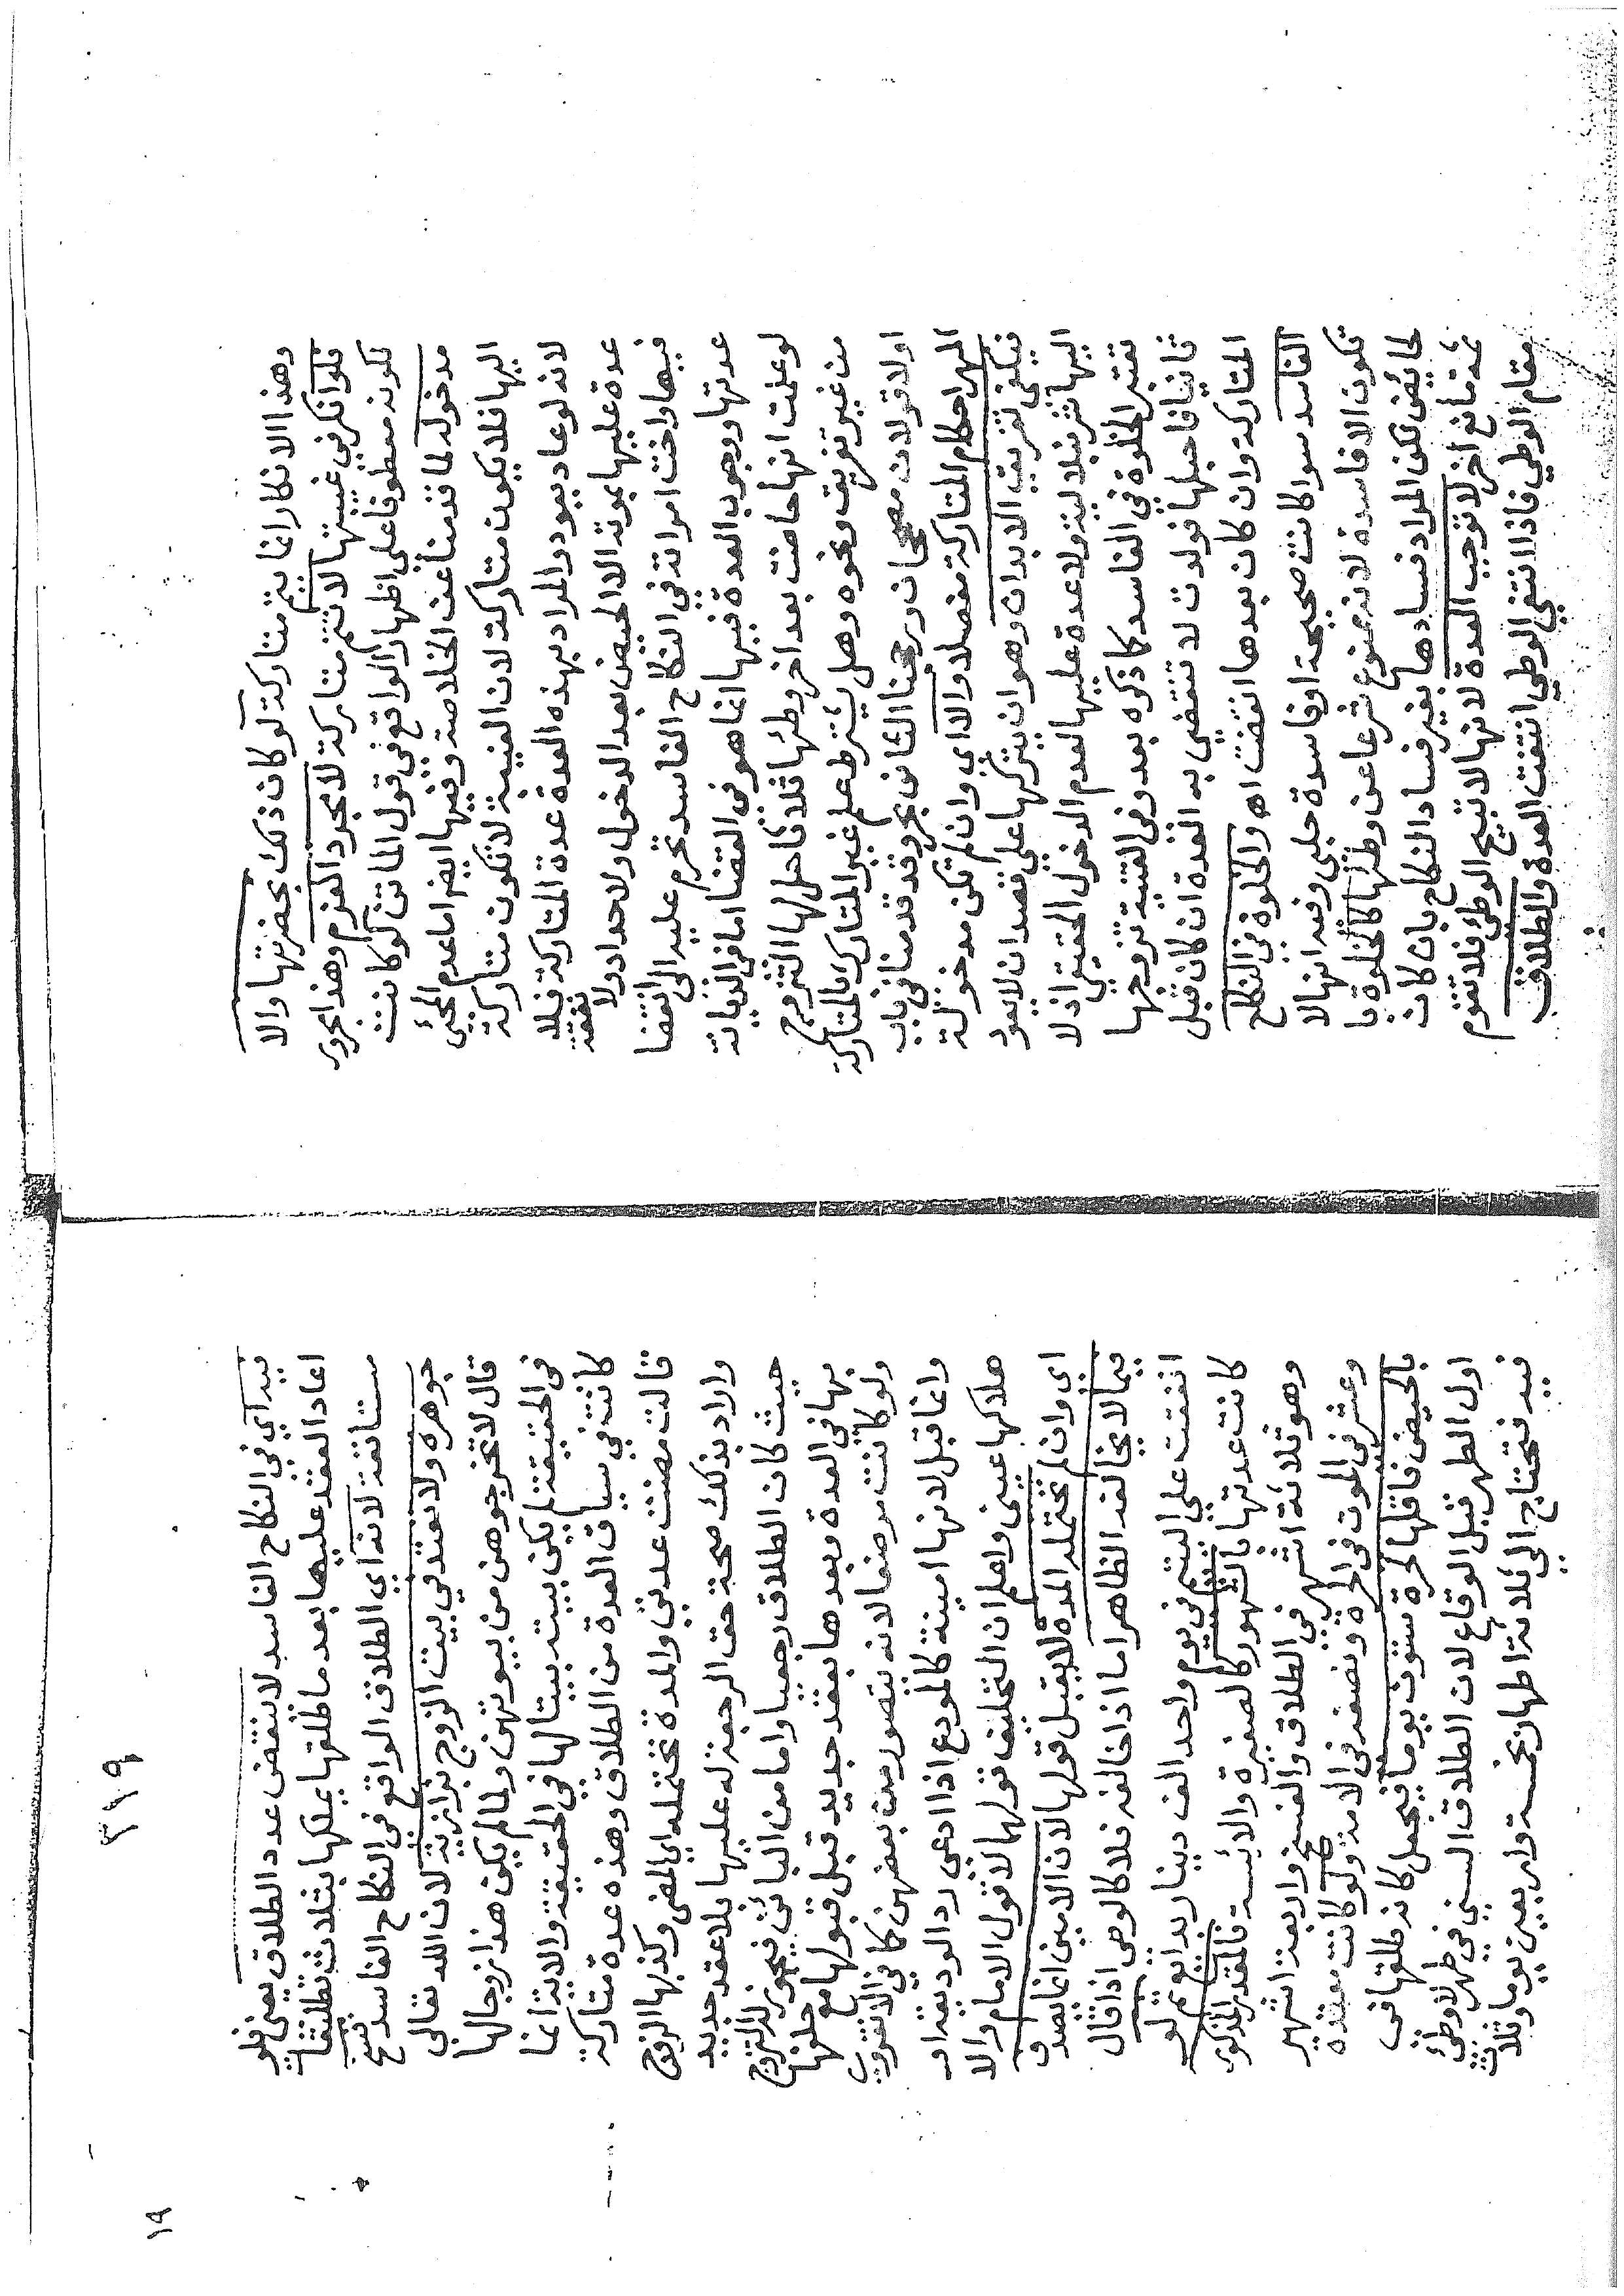 وهذا الانكار انما يتم متاركة لو كان ذلك بحضرتها والا
فلو انكر في غيبتها لا تتم متاركة لا مجرد العزم وهذا مجرور
لكونه معطوفا على اظهار الواقع في قول الماتن لو كانت
مدخوله لما قدمنا عن الخلاصة وفيها ايضا ما عدم المجئ
اليها فلا يكون متاركة لان الغيبة لا تكون متاركة
لانه لو عاد يعود والمراد بهذه العدة عدة المتاركة فلا
عدة عليها بموته الا الحيض بعد الدخول ولا حداد ولا نفقة
فيها واخت امراته في النكاح الفاسد تحرم عليه الى انقضا
عدتها ووجوب العدة فيها انما هو في القضا اما في الديانة
لو علمت انها حاضت بعد اخر وطئها ثلاثا حل لها التزوج
من غير تفريق ونحوه وهل يشترط علم غير المتارك بالمتاركة
اولا قولان مصححان ورجحنا الثاني بحر وقد قدمنا في باب
المهر احكام المتاركة مفصلا والا اي وان لم تكن مدخولة
فيكفي تفريق الابدان وهو ان يتركها على قصد ان لا يعود
اليها شرنبلالية ولا عدة عليها لعدم الدخول الحقيقي اذ لا
تعتبر الخلوة في الفاسد كما ذكره بعد وفي القنية تزوجها
ثانيا فاحبلها فولدت لا تنقضي به العدة ان كان قبل
المتاركة وان كان بعدها انقضت اهـ والخلوة في النكاح
الفاسد سوا كانت صحيحة او فاسدة حلبي وفيه انها لا
تكون الا فاسدة لانه ممنوع شرعا عن وطئها كالخلوة با
لحائض لكن المراد فسادها بغير فساد النكاح بان كان
ثمه مانع اخر لا توجب العدة لانها لا تبيح الوطئ فلا تقوم
مقام الوطي فاذا انتفى الوطي انتفت العدة والطلاق
٣١٩
فيه اي في النكاح الفاسد لا ينقض عدد الطلاق يعني فلو
اعاد العقد عليها بعد ما طلقها يملكها بثلاث تطليقات
مستانفة لانه اي الطلاق الواقع في النكاح الفاسد فسخ
جوهره ولا تعتد في بيت الزوج بزازية لان الله تعالى
قال لا تخرجوهن من بيوتهن ولما لم يكن هذا زوجا لها
في الحقيقة لم يكن بيته بيتا لها في الحقيقة والاية انما
كانت في سياق العدة من الطلاق وهذه عدة متاركة
قالت مضت عدتي والمدة تحتمله اي المضي وكذبها الزوج
واراد بذلك صحة حق الرجعة له عليها بلا عقد جديد
حيث كان الطلاق رجعيا واما من البائن فيجوز له التزوج
بها في العدة وبعدها بعقد جديد قبل قبولها مع حلفها
ولو كانت مرضعا لانه تتصور من بعضهن كما في الانقروي
وانما قبل لانها امينة كالمودع اذا ادعى رد الوديعة او
هلاكها عيني واعلم ان التحليف قولهما لا قول الامام والا
اي وان لم تحتمله المدة لا يقبل قولها لان الامين انما يصدق
فيما لا يخالفه الظاهر اما اذا خالفه فلا كالوصي اذا قال
انفقت على اليتيم في يوم واحد الف دينار بدايع ثم لو
كانت عدتها بالشهور كالصغيرة والائسة فالمقدر المذكور
وهو ثلاثة اشهر في الطلاق والفسخ واربعة اشهر
وعشر في الموت في الحرة ونصفه في الامة ولو كانت معتدة
بالحيض فاقلها لحرة ستون يوما فيجعل كانه طلقها في
اول الطهر قبل الوقاع لان الطلاق السني في طهر لا وطئ
فيه فتحتاج الى ثلاثة اطهار بخمسة واربعين يوما وثلاث
١٩